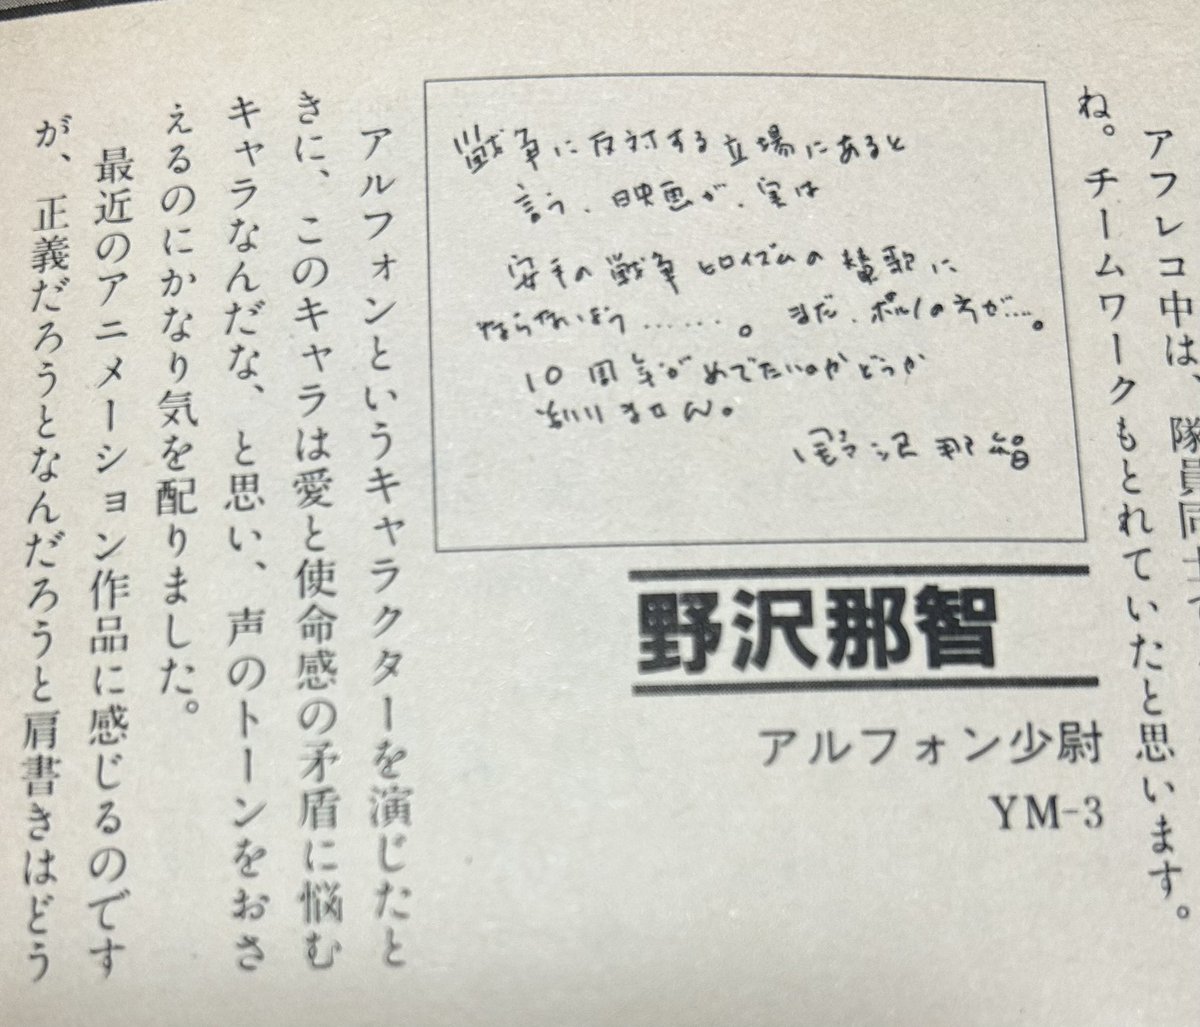 アフレコ中は、隊員同士で
ね。チームワークもとれていたと思います。
戦争に反対する立場にあると
言う、映画が、実は
安手の戦争ヒロイズムの賛歌に
ならないよう……。まだ、ポルノの方が…。
10周年がめでたいのかどうか
判りません。
野沢那智
野沢那智
アルフォン少尉
YM-3
アルフォンというキャラクターを演じたと
きに、このキャラは愛と使命感の矛盾に悩む
キャラなんだな、と思い、声のトーンをおさ
えるのにかなり気を配りました。
最近のアニメーション作品に感じるのです
が、正義だろうとなんだろうと肩書きはどう